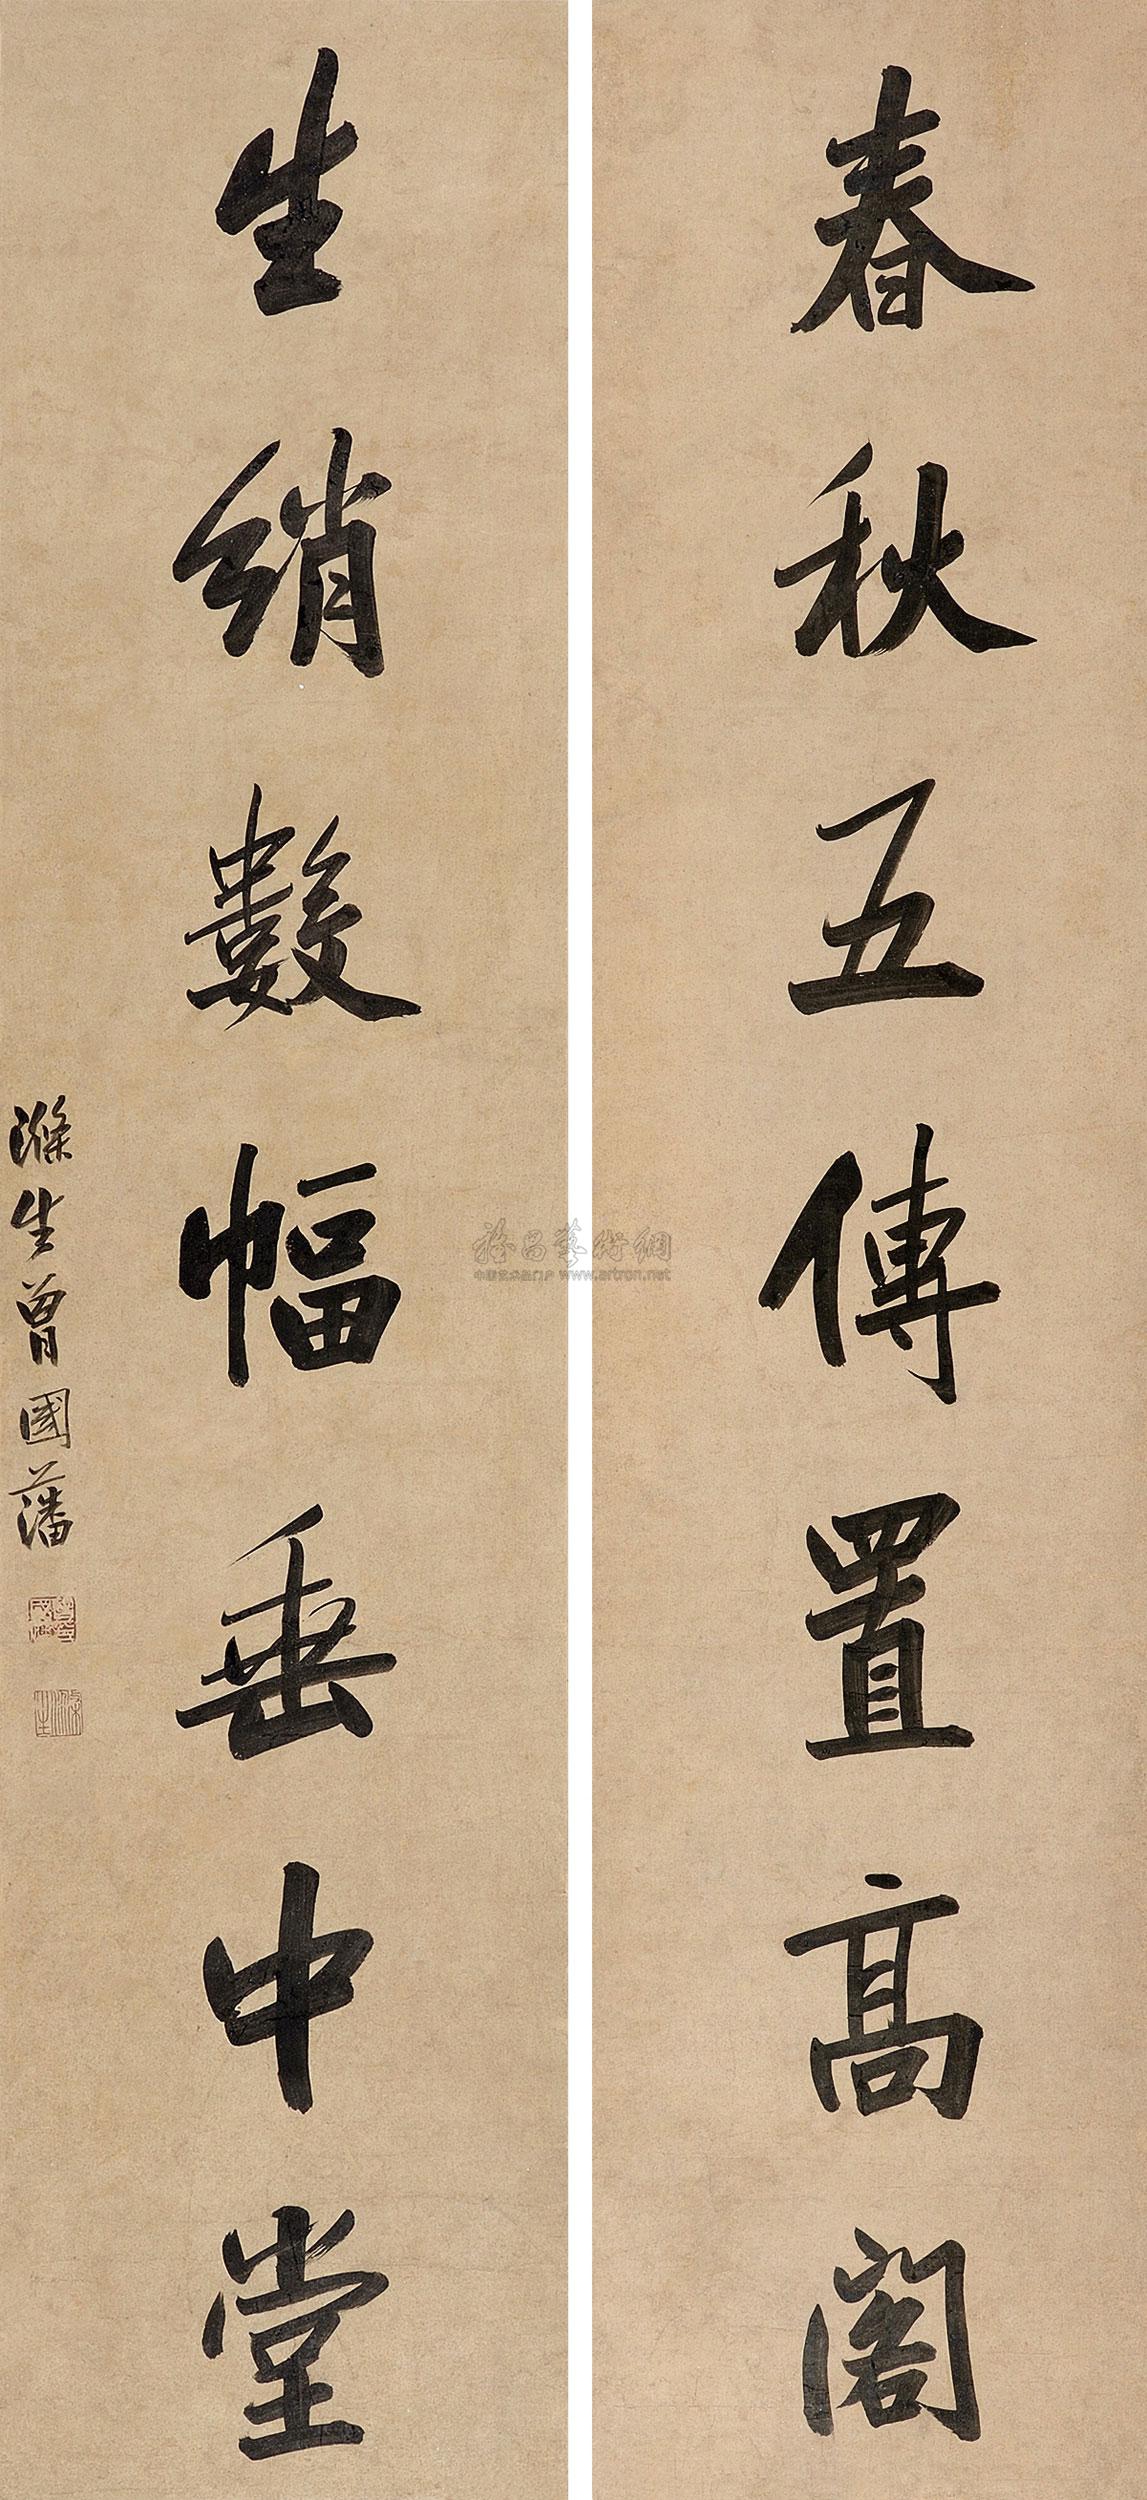 春秋五傳置高閣
生綃數幅垂中堂
滌生曾國藩
雅昌藝術網
中国艺术品门户 www.artron.net